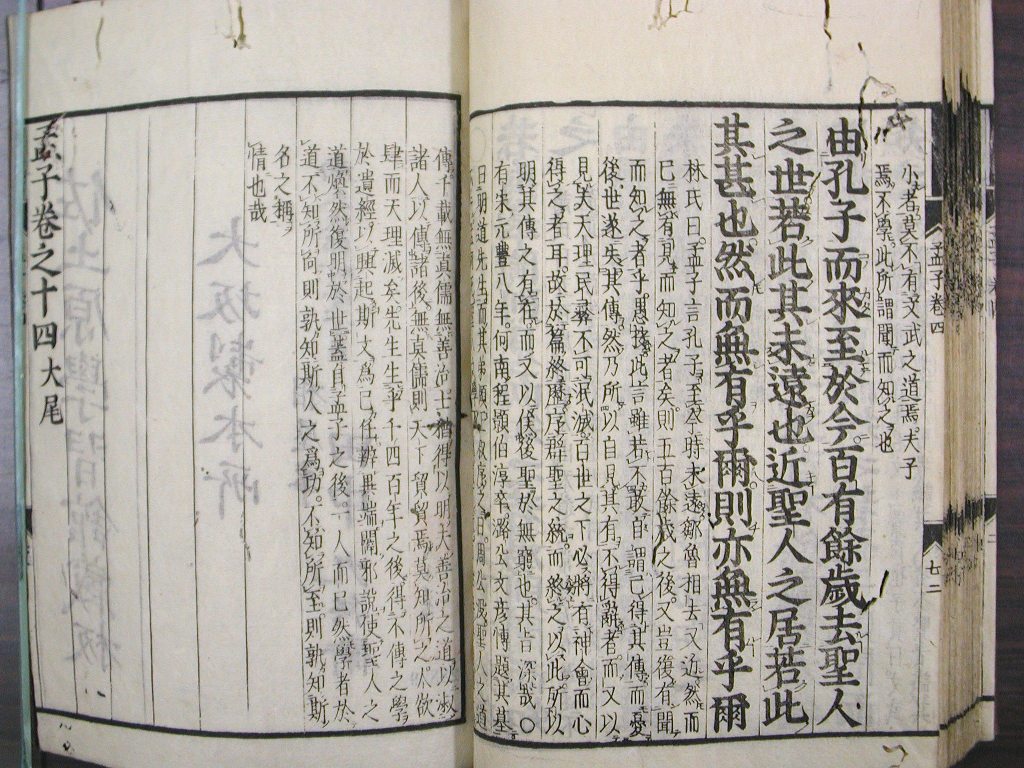 小者莫不有文武之道焉夫子
焉不學此所謂聞而知之也
由孔子而來至於今百有餘歲去聖人
之世若此其未遠也近聖人之居若此
其甚也然而無有乎爾則亦無有乎爾
林氏曰孟子言孔子至今時未遠鄒魯相去又近然而
已無有見而知之者矣則五百餘歲之後又豈復有聞
而知之者乎愚按此言雖若不敢自謂已得其傳而憂
後世遂失其傳然乃所以自見其有不得辭者而又以
見夫天理民彝不可泯滅百世之下必將有神會而心
得之者耳故於篇終歷序群聖之統而終之以此所以
明其傳之有在而又以俟後聖於無窮也其旨深哉○
有宋元豐八年河南程顥伯淳卒潞公文彥博題其墓
曰明道先生而其弟頤正叔序之曰周公沒聖人之道
傳千載無真儒無善治士猶得以明夫善治之道以淑
諸人以傳諸後無真儒則天下貿貿焉莫知所之人欲
肆而天理滅矣先生生乎千四百年之後得不傳之學
於遺經以興起斯文爲己任辨異端闢邪說使聖人之
道煥然復明於世蓋自孟子之後一人而已然學者於
道不知所向則孰知斯人之爲功不知所至則孰知斯
名之稱
情也哉
孟子卷之十四大尾
孟子卷四
七二